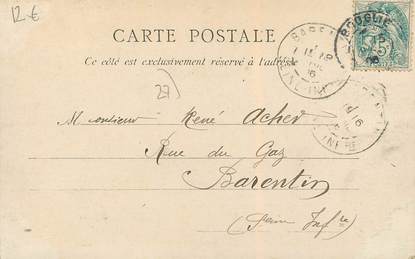 12 €
CARTE POSTALE
Ce côté est exclusivement réservé à l'adresse
BROGLIE
27
Monsieur René Acher
Rue du Gaz
Barentin
(Seine Infre)